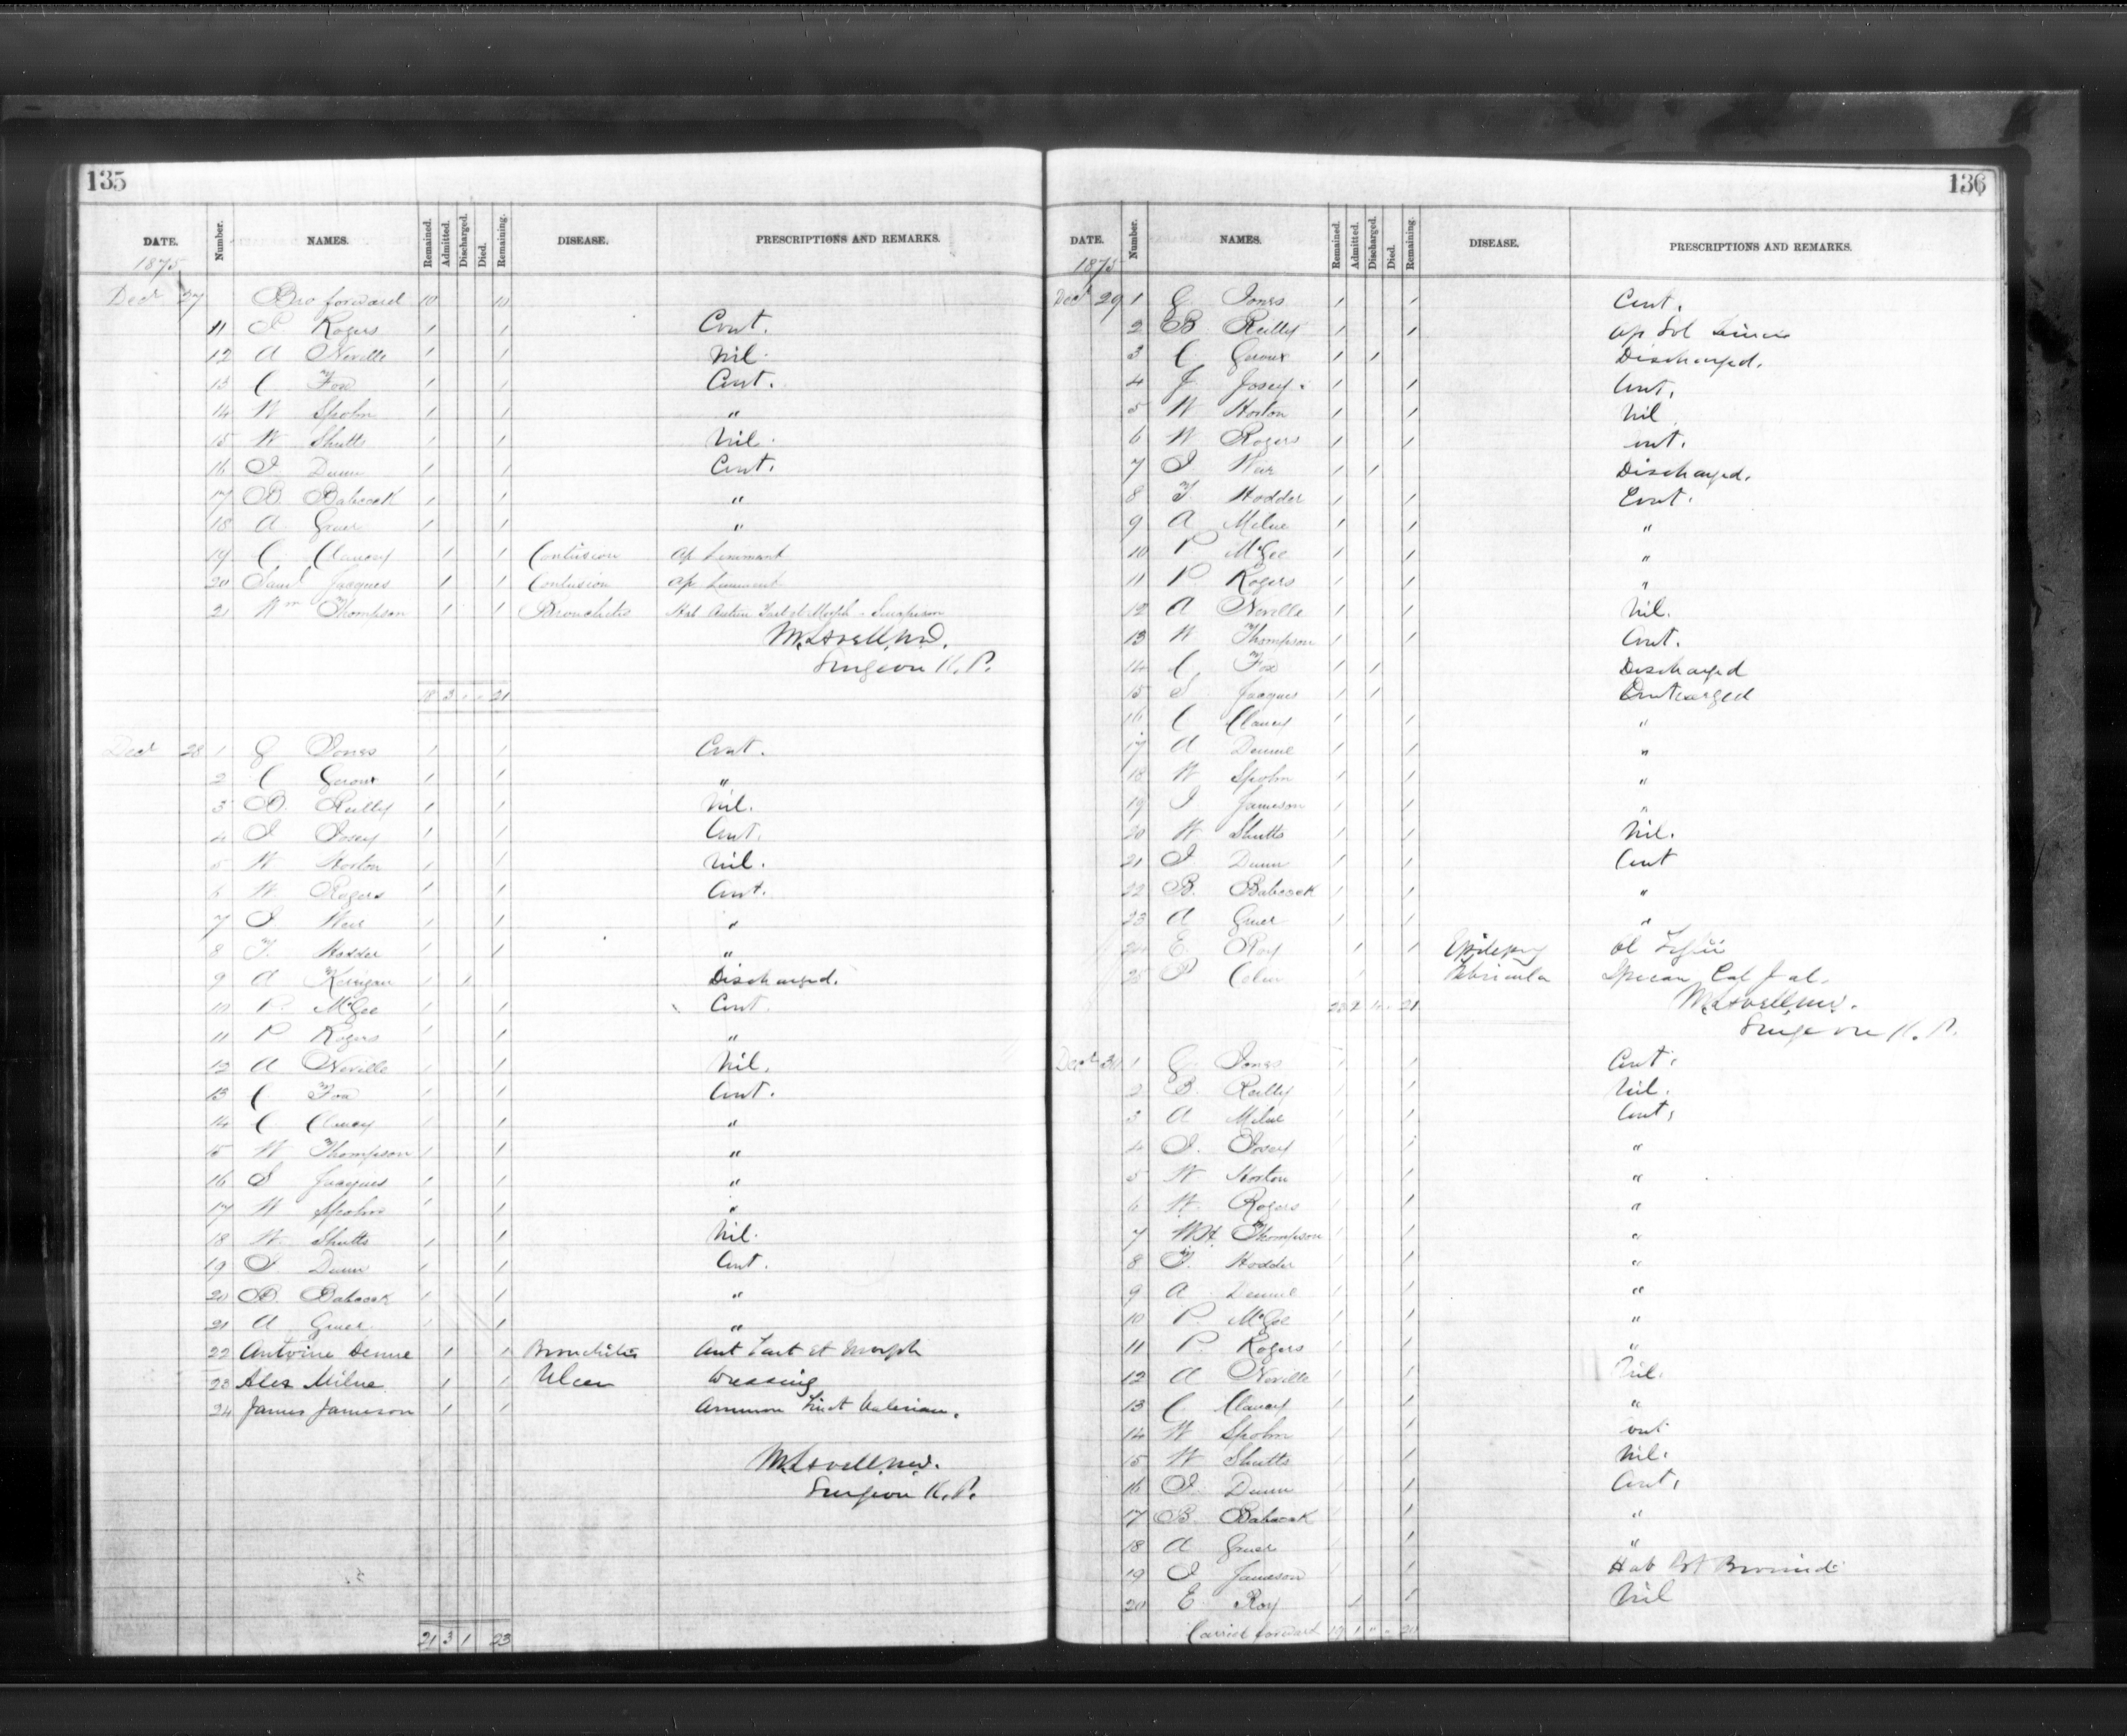 135
DATE. Number. NAMES. Remained. Admitted. Discharged. Died. Remaining. DISEASE. PRESCRIPTIONS AND REMARKS.
1875
Decr 27 Bro forward 10 10
11 P Rogers 1 1 Cont.
12 A Neville 1 1 Nil.
13 C Fox 1 1 Cont.
14 W Spohn 1 1 "
15 W Shutts 1 1 Nil.
16 J Dunn 1 1 Cont.
17 B Babcock 1 1 "
18 A Greer 1 1 "
19 C Clancey 1 1 Contusion Ap Liniment
20 Saml Jaques 1 1 Contusion Ap Liniment
21 Wm Thompson 1 1 Bronchitis Hab Antim Tart et Morph - Sinapism
M. Lavell, M.D.
Surgeon K. P.
18 3 " " 21
Decr 28 1 G Jones 1 1 Cont.
2 C Geroux 1 1 "
3 B. Reilly 1 1 Nil.
4 J Josey 1 1 Cont.
5 W Horton 1 1 Nil.
6 W Rogers 1 1 Cont.
7 J Weir 1 1 "
8 T. Hodder 1 1 "
9 A Kerrigan 1 1 Discharged.
10 P. McGee 1 1 Cont.
11 P Rogers 1 1 "
12 A Neville 1 1 Nil.
13 C. Fox 1 1 Cont.
14 C Clancy 1 1 "
15 W Thompson 1 1 "
16 S Jaques 1 1 "
17 W Spohn 1 1 "
18 W Shutts 1 1 Nil.
19 J Dunn 1 1 Cont.
20 B. Babcock 1 1 "
21 A Greer 1 1 "
22 Antoine Denne 1 1 Bronchitis Ant Tart et Morph
23 Alex Milne 1 1 Ulcer Dressing
24 James Jameson 1 1 Ammon Tinct Valerian.
M. Lavell, M.D.
Surgeon K. P.
21 3 1 23
136
DATE. Number. NAMES. Remained. Admitted. Discharged. Died. Remaining. DISEASE. PRESCRIPTIONS AND REMARKS.
1875
Decr 29 1 G. Jones 1 1 Cont.
2 B. Reilly 1 1 Ap Sol
3 C. Geroux 1 1 Discharged.
4 J. Josey. 1 1 Cont.
5 W Horton 1 1 Nil
6 W Rogers 1 1 Cont.
7 J Weir 1 1 Discharged.
8 T. Hodder 1 1 Cont.
9 A Milne 1 1 "
10 P McGee 1 1 "
11 P. Rogers 1 1 "
12 A Neville 1 1 Nil.
13 W Thompson 1 1 Cont.
14 C, Fox 1 1 Discharged
15 S Jaques 1 1
16 C Clancy 1 1 "
17 A Denne 1 1 "
18 W Spohn 1 1 "
19 J Jameson 1 1 "
20 W Shutts 1 1 Nil.
21 J Dunn 1 1 Cont
22 B. Babcock 1 1 "
23 A Greer 1 1 "
24 E. Roy 1 1 Epilepsy Ol
25 P 1 Febricula Ipecac Cal Jal.
23 2 21
M. Lavell, M.D.
Surgeon K. P.
Decr 30 1 G. Jones 1 1 Cont.
2 B. Reilly 1 1 Nil.
3 A Milne 1 1 Cont.
4 J. Josey 1 1 "
5 W Horton 1 1 "
6 W. Rogers 1 1 "
7 W.H. Thompson 1 1 "
8 T. Hodder 1 1 "
9 A Denne 1 1 "
10 P. McGee 1 1 "
11 P. Rogers 1 1 "
12 A Neville 1 1 Nil.
13 C, Clancy 1 1 "
14 W Spohn 1 1 Cont
15 W Shutts 1 1 Nil.
16 J. Dunn 1 1 Cont.
17 B. Babcock 1 1 "
18 A Greer 1 1 "
19 J Jameson 1 1 Hab Pot Bromid
20 E Roy 1 1 Nil
Carried forward 19 1 " " 20